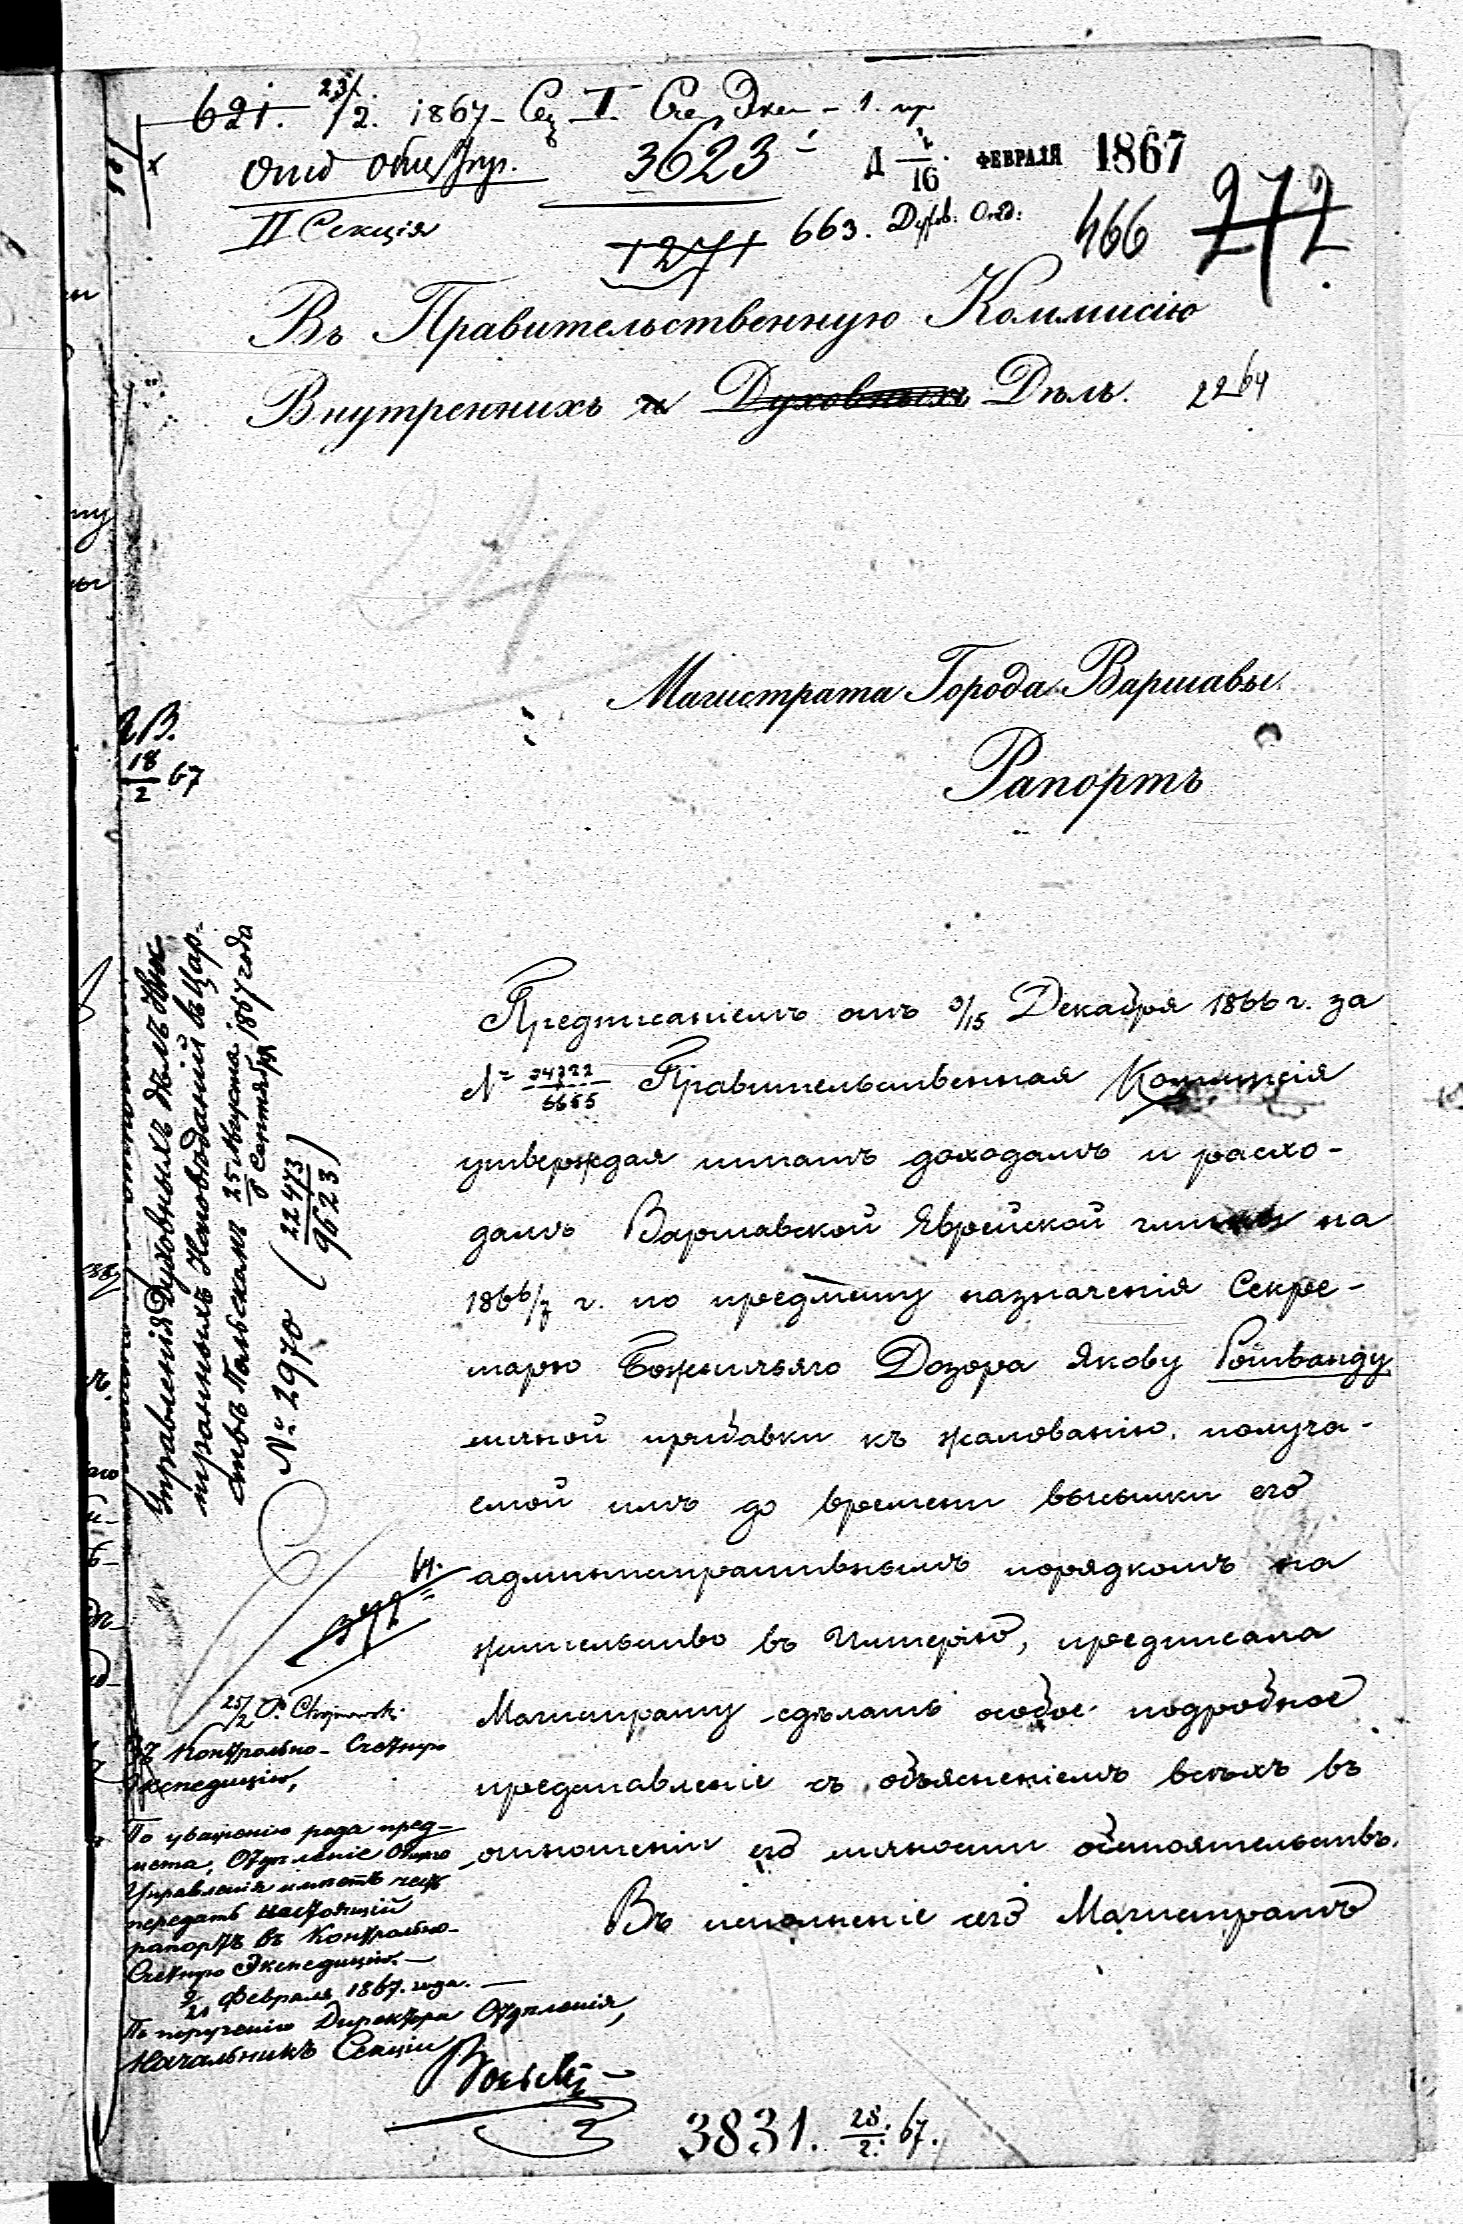 621. 23/2. 1867
3623
Д 16 ФЕВРАЛЯ 1867
Отд Общ Упр.
II Секція
1271 663. Духов: Отд: 466 272
Въ Правительственную Коммисію
Внутреннихъ и Духовныхъ Дѣлъ. 2264
24
Магистрата Города Варшавы
Рапортъ
18/2 67
Предписаніемъ отъ 3/15 Декабря 1866 г. за
№ 6655 Правительственная Коммисія
утверждая штатъ доходамъ и расхо-
дамъ Варшавской Еврейской гмины на
1866/7 г. по предмету назначенія Секре-
тарю Божничьяго Дозора Якову Ротванду
личной прибавки къ жалованію, получа-
емой имъ до времени высылки его
административнымъ порядкомъ на
жительство въ Имперію, предписала
Магистрату сдѣлать особое подробное
представленіе съ объясненіемъ всѣхъ въ
отношеніи его личности обстоятельствъ.
Въ исполненіе сего Магистратъ
Управленія Духовныхъ дѣлъ Ино-
странныхъ Исповѣданій въ Цар-
ствѣ Польскомъ 25 Августа / 6 Сентября 1867 года
№ 2970 (22473/9623)
25/2 Chojnowski
Въ Контрольно-Счетную
Экспедицію,
По уваженію рода пред-
мета, Отдѣленіе Общаго
Управленія имѣетъ честь
передать настоящій
рапортъ въ Контрольно-
Счетную Экспедицію.—
9/21 Февраля 1867. года.—
По порученію Директора Отдѣленія,
Начальникъ Секціи
3831. 28/2. 67.